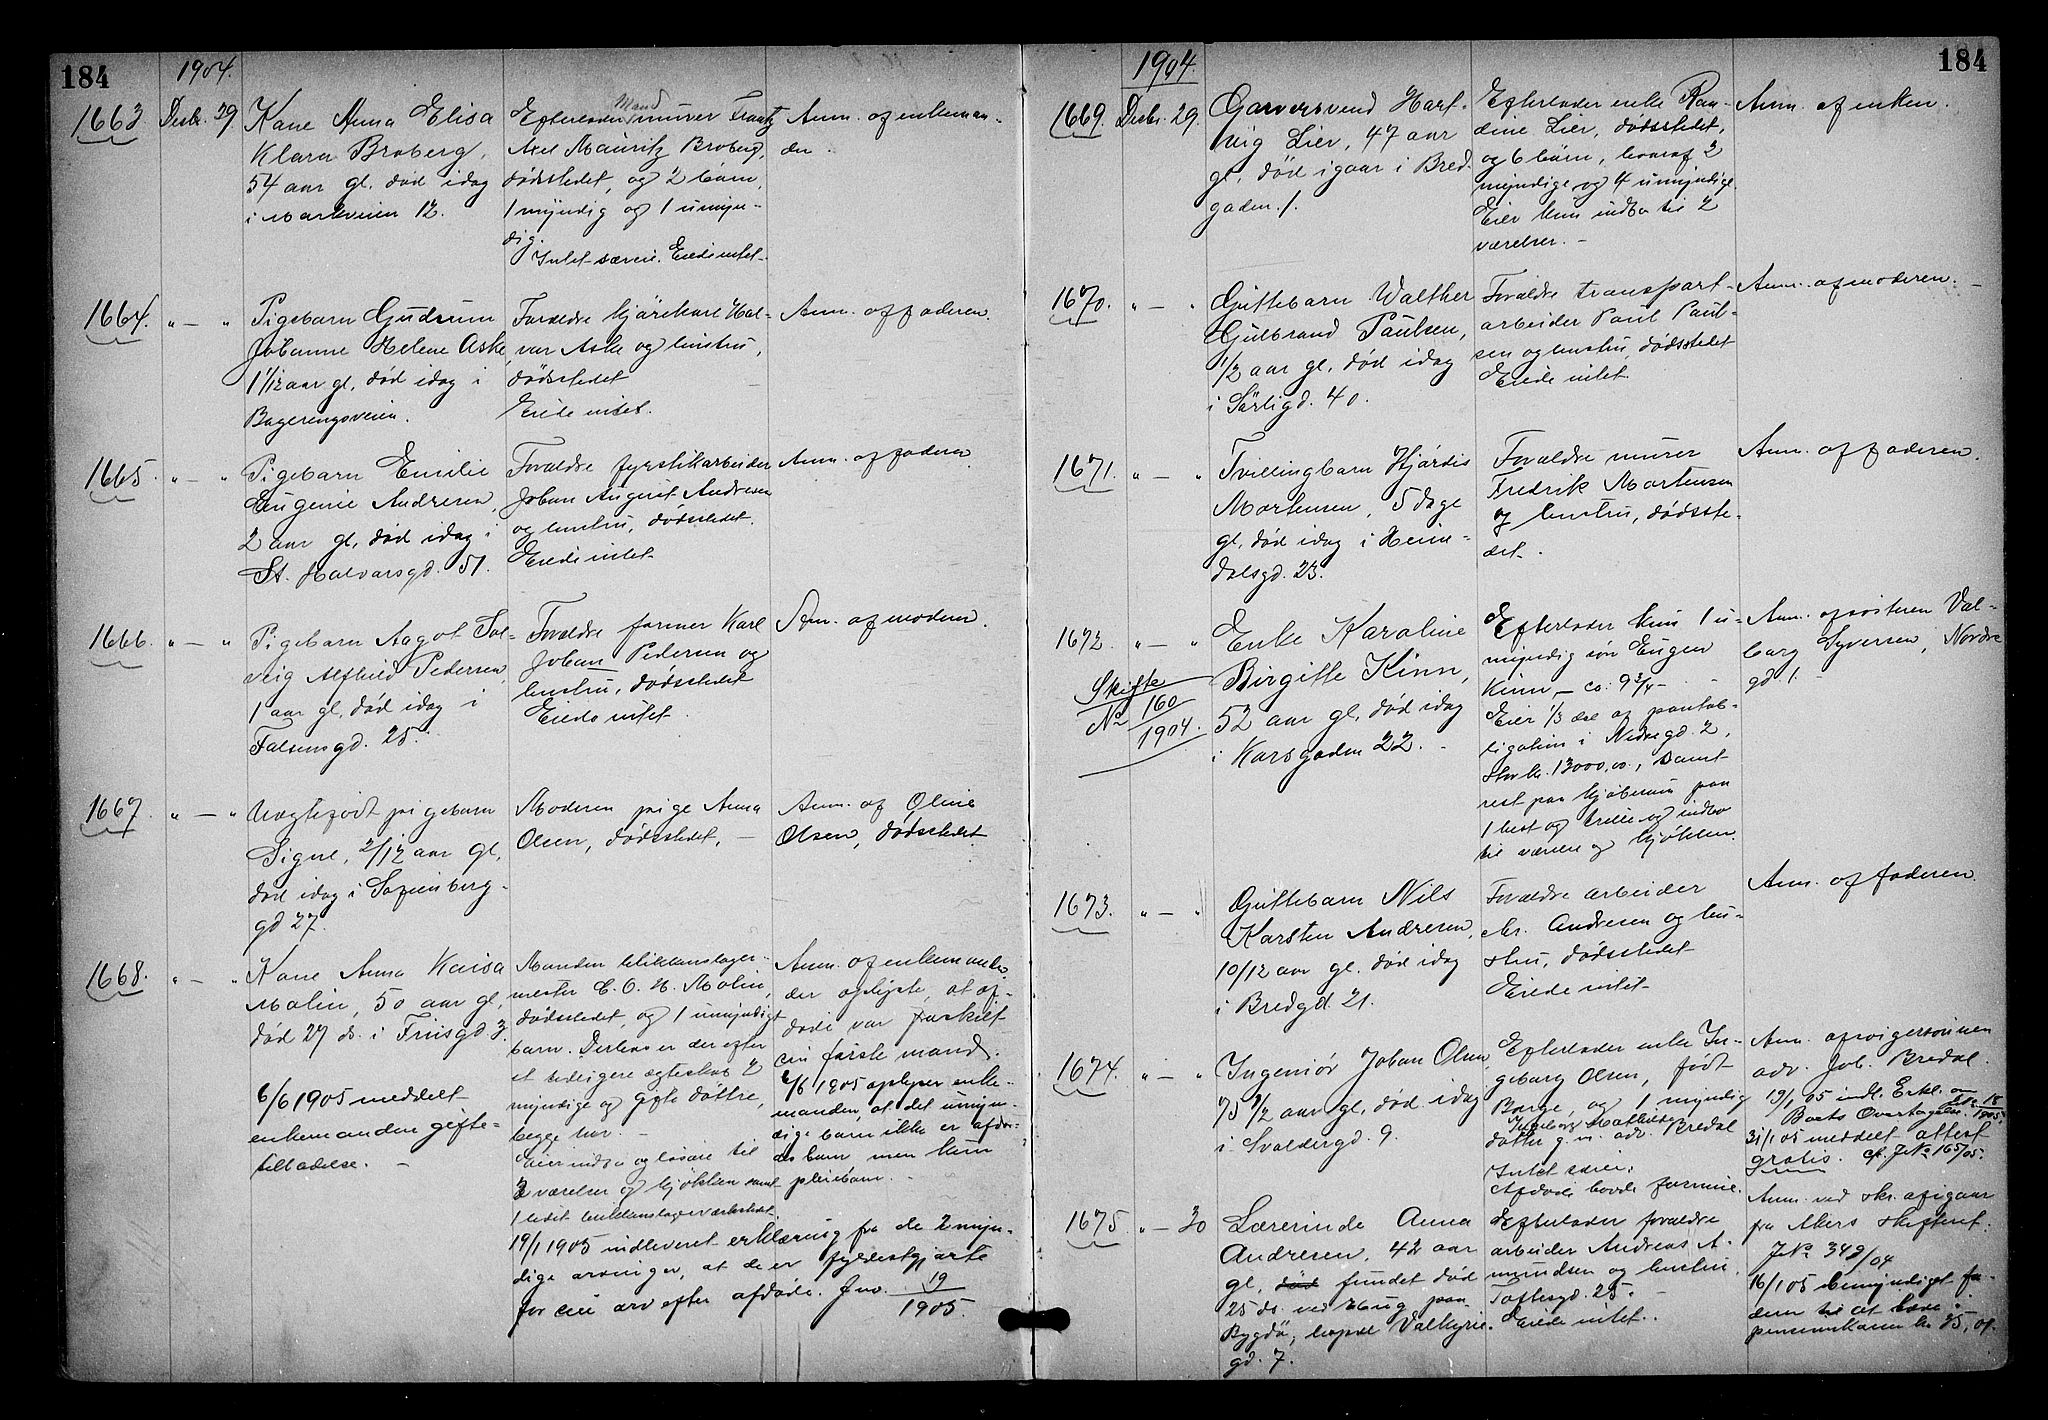 184
1904.
1663
Desbr. 29.
Kone Anna Elisa
Klara Broberg,
54 aar gl. død idag
i Markveien 12.
Mand
Efterlader murer Frantz
Axel Mauritz Broberg,
dødsstedet, og 2 børn,
1 myndig og 1 umyn-
dig.
Intet særeie. Eiede intet.
Anm. af enkeman-
den.
1664.
" — "
Pigebarn Gudrun
Johanne Helene Aske,
1 1/12 aar gl. død idag i
Forældre kjørekarl Hal-
vor Aske og hustru,
dødsstedet
Eiede intet.
Anm. af faderen.
1665.
" — "
Pigebarn Emilie
Eugenie Andresen,
2 aar gl. død idag i
St. Halvarsgd. 51.
Forældre fyrstikarbeider
Johan August Andresen
og hustru, dødsstedet.
Eiede intet.
Anm. af faderen.
1666.
" — "
Pigebarn Aagot Sol-
veig Alfhild Pedersen,
1 aar gl. død idag i
Falsensgd. 25.
Forældre former Karl
Johan Pedersen og
hustru, dødsstedet
Eiede intet.
Anm. af moderen.
1667.
" — "
Uægtefødt pigebarn
Signe, 2/12 aar gl.
død idag i Sofienberg-
gd 27.
Moderen pige Anna
Olsen, dødsstedet. —
Anm. af Oline
Olsen, dødsstedet.
1668.
" — "
Kone Anna Kaisa
Molin, 50 aar gl,
død 27 ds. i Friisgd. 3.
6/6 1905 meddelt
enkemanden gifte-
tilladelse. —
Manden blikkenslager-
mester C. O. H. Molin,
dødsstedet, og 1 umyndigt
barn. Derhos er der efter
et tidligere ægteskab 2
myndige og gifte døttre,
begge her. —
Eier indbo og løsøre til
3 værelser og kjøkken samt
1 lidet blikkenslagerverksted.
19/1 1905 indleveret erklæring fra de 2 myn-
dige arvinger, at de er fyldestgjorte
for sin arv efter afdøde. Jno. 19/1905.
Anm. af enkemanden
der oplyste, at af-
døde var fraskilt
sin første mand.
6/6 1905 oplyser enke-
manden, at det umyn-
dige barn ikke er afdø-
des barn men kun
pleiebarn. —
184
1904.
1669.
Desbr. 29.
Garversvend Hart-
vig Lier, 47 aar
gl, død igaar i Bred-
gaden 1.
Efterlader enke Ran-
dine Lier, dødsstedet,
og 6 børn, hvoraf 2
myndige og 4 umyndige.
Eier kun indbo til 2
værelser. —
Anm. af enken.
1670.
" — "
Guttebarn Walther
Gulbrand Paulsen,
1/2 aar gl, død idag
i Sørligd. 40.
Forældre transport-
arbeider Paul Paul-
sen og hustru, dødsstedet
Eiede intet.
Anm. af moderen. —
1671.
" — "
Tvillingbarn Hjørdis
Mortensen, 5 dage
gl, død idag i Heim-
dalsgd. 23.
Forældre murer
Fredrik Mortensen
og hustru, dødsste-
det.
Anm. af faderen.
1672.
" — "
Skifte
No 160
1904.
Enke Karoline
Birgitte Kinn,
52 aar gl, død idag
i Korsgaden 22. —
Efterlader kun 1 u-
myndig søn Eugen
Kinn, — ca. 9 3/4 —
Eier 1/3 del af pantob-
ligation i Nedregd. 2,
stor kr. 13000,00, samt
rest paa kjøbesum paa
1 hest og trille og indbo
til værelse og kjøkken.
Anm. af søsteren Val-
borg Syversen, Nordre
gd. 1.
1673.
" — "
Guttebarn Nils
Karsten Andresen,
10/12 aar gl. død idag
i Bredgd. 21.
Forældre arbeider
Chr. Andresen og hu-
stru, dødsstedet
Eiede intet
Anm. af faderen.
1674.
" — "
Ingeniør Johan Olsen
75 1/2 aar gl, død idag
i Svoldergd. 9.
Efterlader enke In-
geborg Olsen, født
Borge, og 1 myndig
Ingeborg Mathilde
datter g. m. adv. Bredal
Intet særeie.
Afdøde havde formue.
Anm. af svigersønnen
adv. Joh. Bredal.
19/1 05 indl. Erkl. om
Boets Overtagelse. J.No 18/1905.
31/1 05 meddelt attest
gratis. cf. J.No 165/05.
1675
" — 30
Lærerinde Anna
Andresen, 42 aar
gl, død fundet død
25 ds. ved Hug paa
Bygdø, boende Valkyrie-
gd. 7.
Efterlader forældre
arbeider Andreas A-
mundsen og hustru
Toftesgd. 25. —
Eiede intet.
Anm. ved skr. af igaar
fra Akers skifteret.
J.No 349/04
16/1 05 bemyndiget fa-
deren til at hæve i
pensionskassen kr. 25,01.